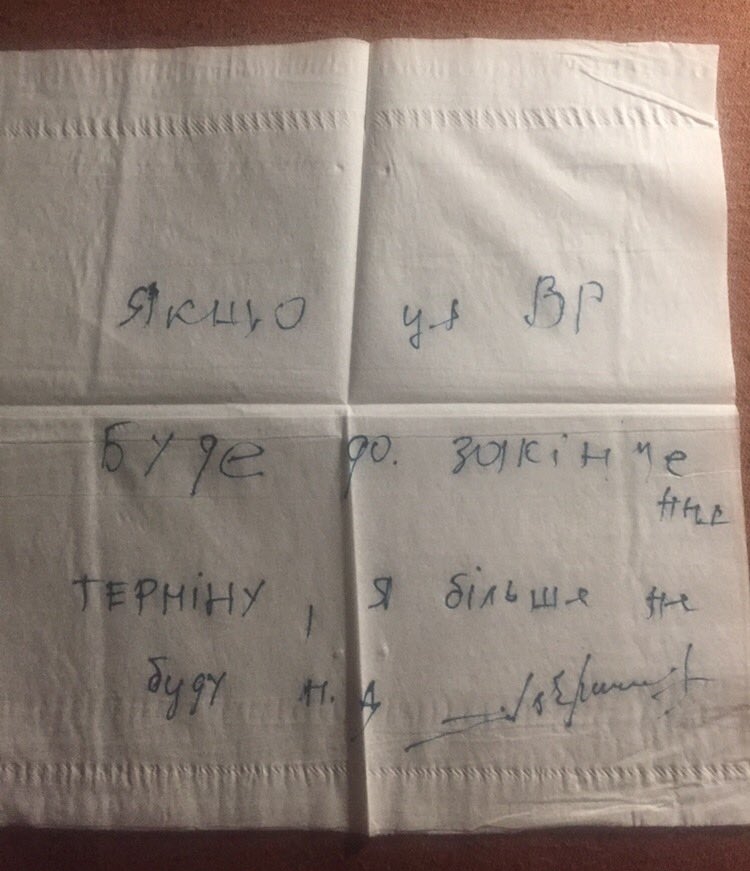 Якщо ця ВР
буде до. закінче
ння
терміну, я більше не
буду н.д